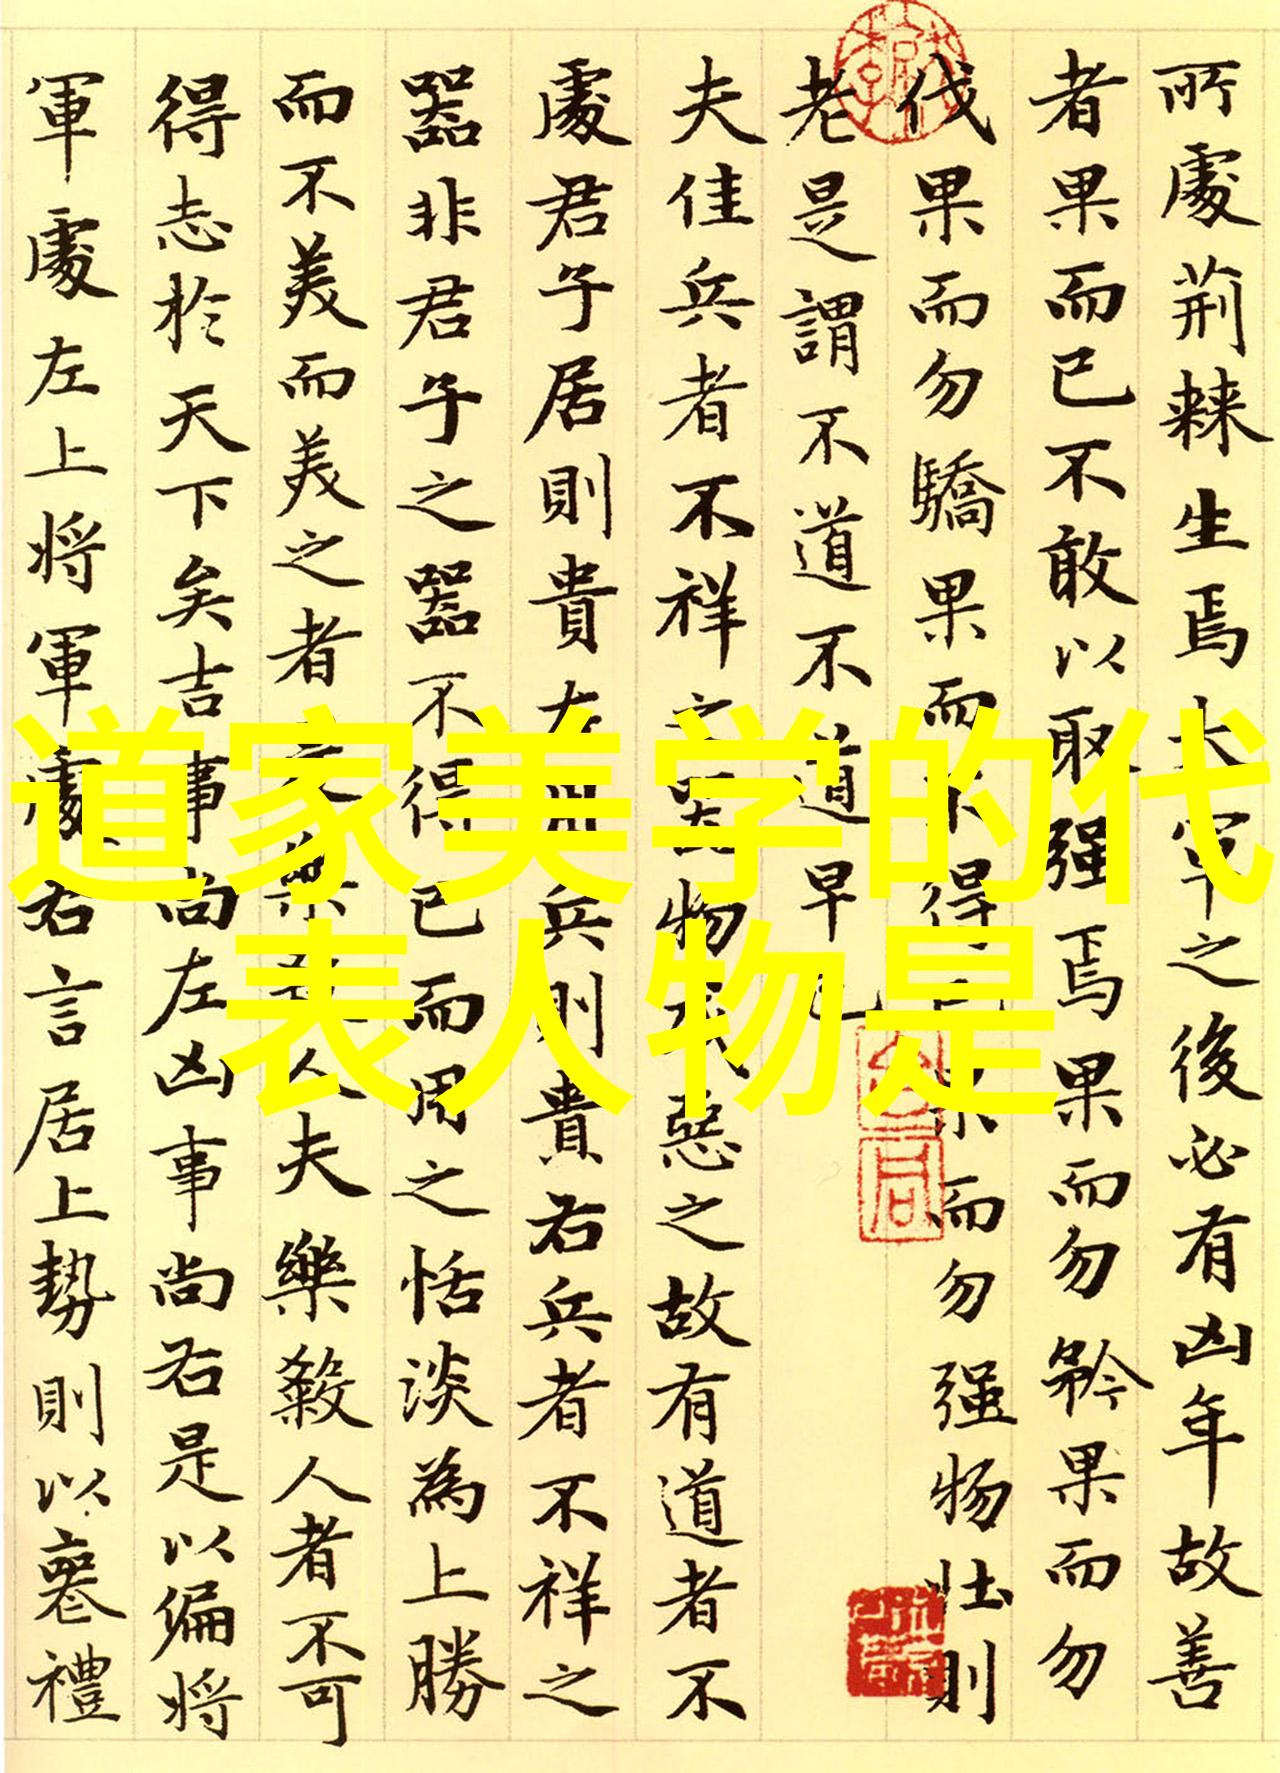 道家美学的代
表人物是
所處荊棘生焉大軍之後必有凶年故善
者果而已不敢以取强焉果而勿矜果而勿
伐果而勿驕果而不得已果而勿强物壯則
老是謂不道不道早已
夫佳兵者不祥之器物或惡之故有道者不
處君子居則貴左用兵則貴右兵者不祥之
噐非君子之噐不得已而用之恬淡為上勝
而不美而美之者是樂殺人夫樂殺人者不可
得志於天下矣吉事尚左凶事尚右是以偏將
軍處左上將軍處右言居上勢則以喪禮